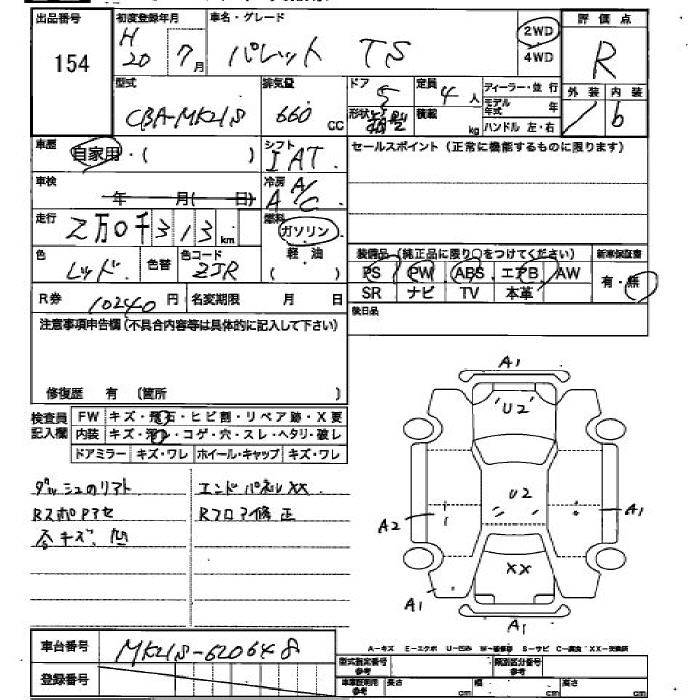 出品番号 初度登録年月 車名・グレード 評価点
154 H20 7月 パレット TS 2WD 4WD R
型式 排気量 ドア 定員 ディーラー・並行 外装 内装
CBA-MK21S 660 CC 5 4人 モデル年式 年 b
形状 箱型 積載 kg ハンドル 左・右
車歴 自家用・( ) シフト IAT セールスポイント (正常に機能するものに限ります)
車検 年 月( 日) 冷房 A/C
走行 2万0千313km 燃料 ガソリン
色 レッド 色替 色コード ZJR 軽油 ( ) 装備品 (純正品に限り○をつけてください) 新車保証書
PS PW ABS エアB AW 有・無
R券 10240円 名変期限 月 日 SR ナビ TV 本革
注意事項申告欄(不具合内容等は具体的に記入して下さい) 後日品
修復歴 有 (箇所 )
検査員記入欄 FW キズ・飛石・ヒビ割・リペア跡・X要
内装 キズ・汚レ・コゲ・穴・スレ・ヘタリ・破レ
ドアミラー キズ・ワレ ホイール・キャップ キズ・ワレ
A1
U2
U2
A2
A1
XX
A1
A1
エンドパネルXX
Rフロア修正
各キズ、凹
車台番号 MK21S-620648
登録番号
A-キズ E-エクボ U-凹み W-補修跡 S-サビ C-腐食 XX-交換済
型式指定番号 参考 類別区分番号 参考
車庫証明用 参考 長さ cm 幅 cm 高さ cm